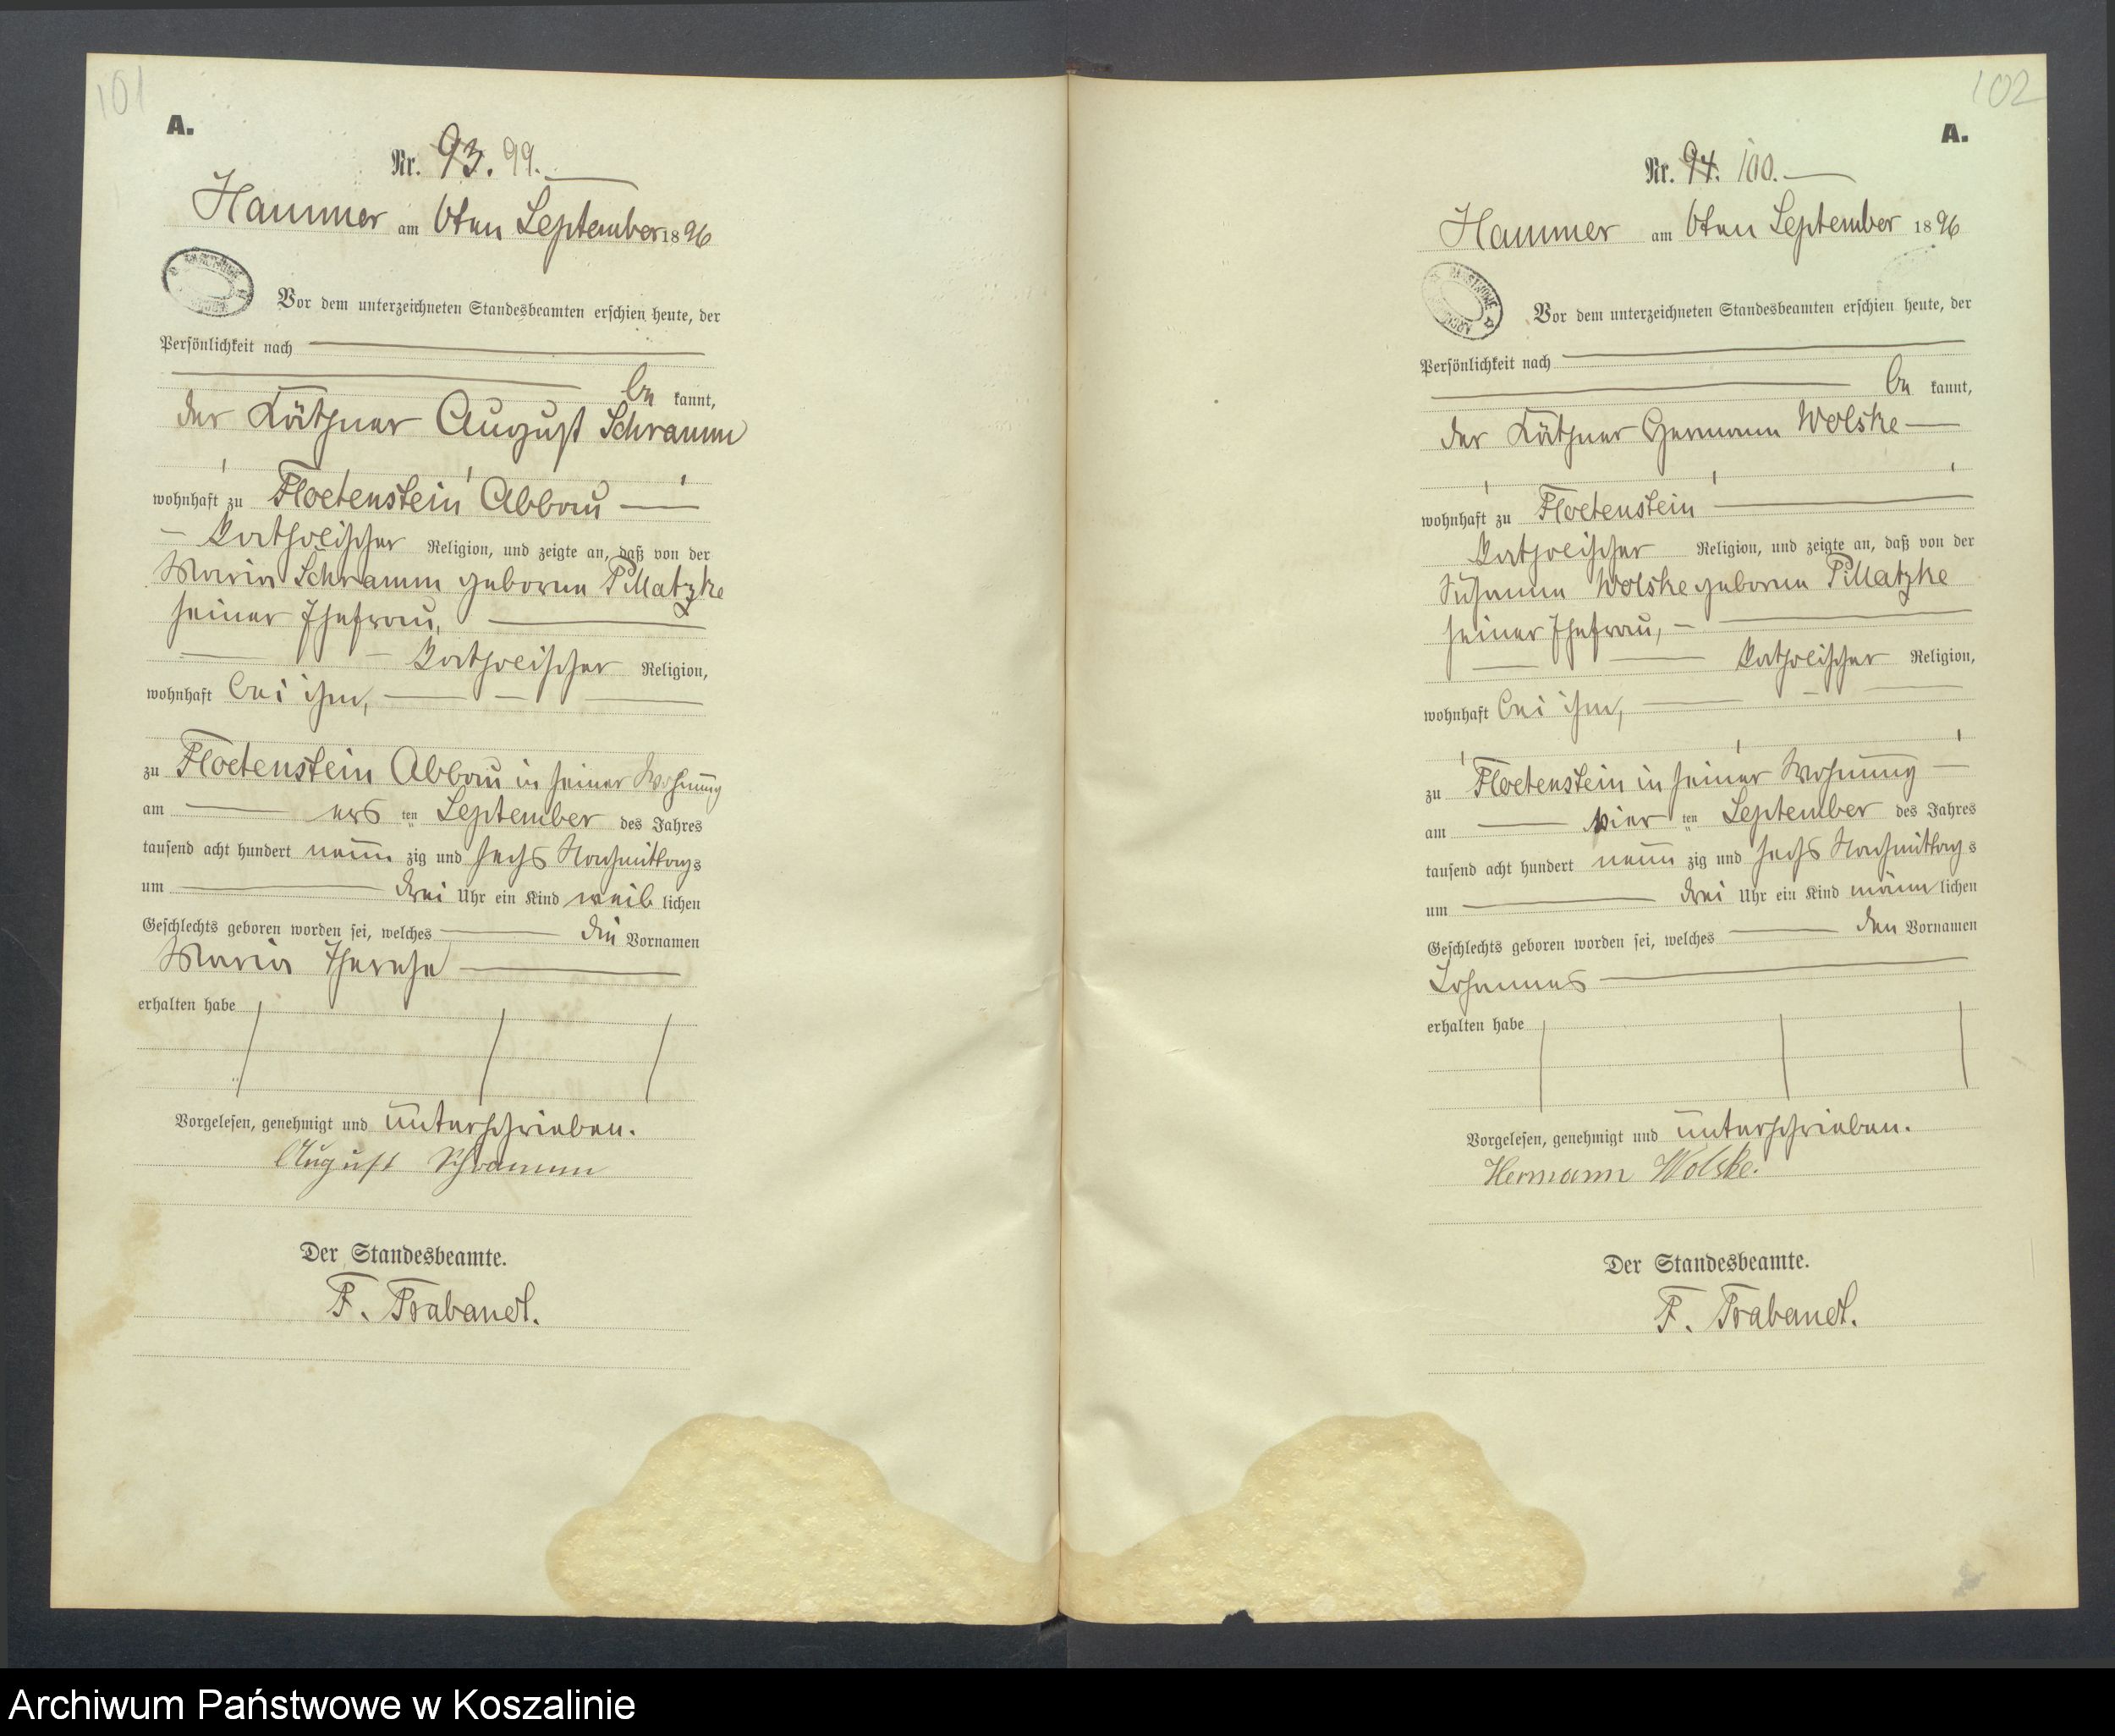 101
A.
Nr. 93. 99.
Hammer am 6ten September 1896
Vor dem unterzeichneten Standesbeamten erschien heute, der
Persönlichkeit nach
be kannt,
der Käthner August Schramm
wohnhaft zu Floetenstein Abbau
katholischer Religion, und zeigte an, daß von der
Maria Schramm geborne Pillatzke
seiner Ehefrau,
katholischer Religion,
wohnhaft bei ihm,
zu Floetenstein Abbau in seiner Wohnung
am ers ten September des Jahres
tausend acht hundert neun zig und sechs Nachmittags
um drei Uhr ein Kind weib lichen
Geschlechts geboren worden sei, welches die Vornamen
Maria Therese
erhalten habe
Vorgelesen, genehmigt und unterschrieben.
August Schramm
Der Standesbeamte.
F. Trabandt.
102
A.
Nr. 94. 100.
Hammer am 6ten September 1896
Vor dem unterzeichneten Standesbeamten erschien heute, der
Persönlichkeit nach
be kannt,
der Käthner Hermann Wolske
wohnhaft zu Floetenstein
katholischer Religion, und zeigte an, daß von der
Susanna Wolske geborne Pillatzke
seiner Ehefrau,
katholischer Religion,
wohnhaft bei ihm,
zu Floetenstein in seiner Wohnung
am vier ten September des Jahres
tausend acht hundert neun zig und sechs Nachmittag s
um drei Uhr ein Kind männ lichen
Geschlechts geboren worden sei, welches den Vornamen
Johannes
erhalten habe
Vorgelesen, genehmigt und unterschrieben.
Hermann Wolske.
Der Standesbeamte.
F. Trabandt.
Archiwum Państwowe w Koszalinie